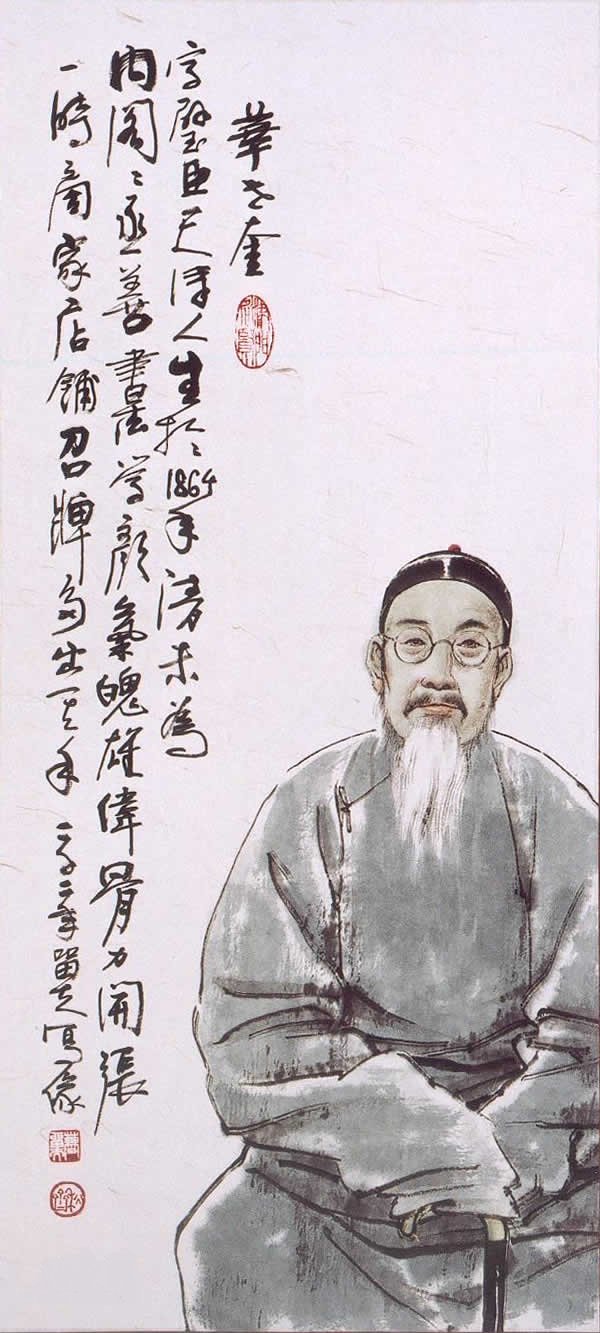 華世奎
字璧臣天津人生於1864年清末為
內閣〻丞善書法學顏氣魄雄偉骨力開張
一時商家店舖召牌多出其手 二年 寫像